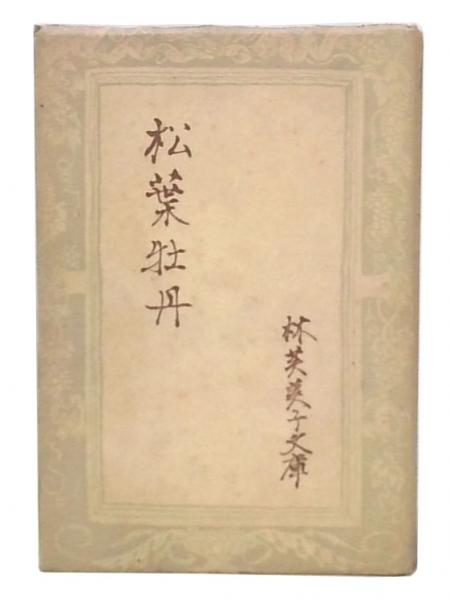 松葉牡丹
林芙美子文庫